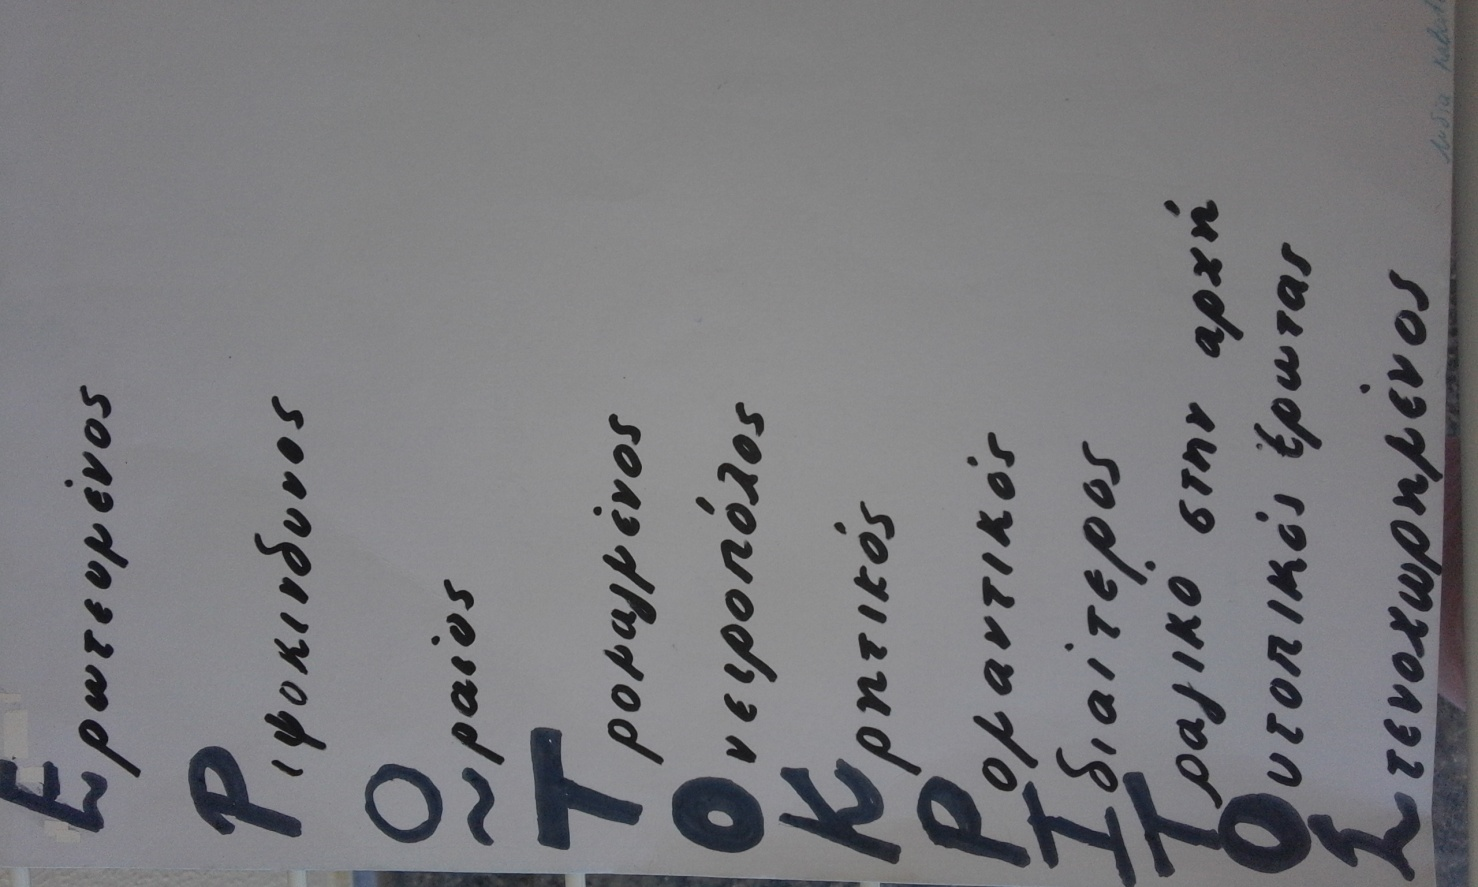 Ερωτευμένος
Ριψοκινδυνος
Ωραίος
Τρομαγμένος
Ονειροπόλος
Κρητικός
Ρομαντικός
Ιδιαίτερος
Τραγικό στην αρχή
Ουτοπικός έρωτας
Στενοχωρημένος